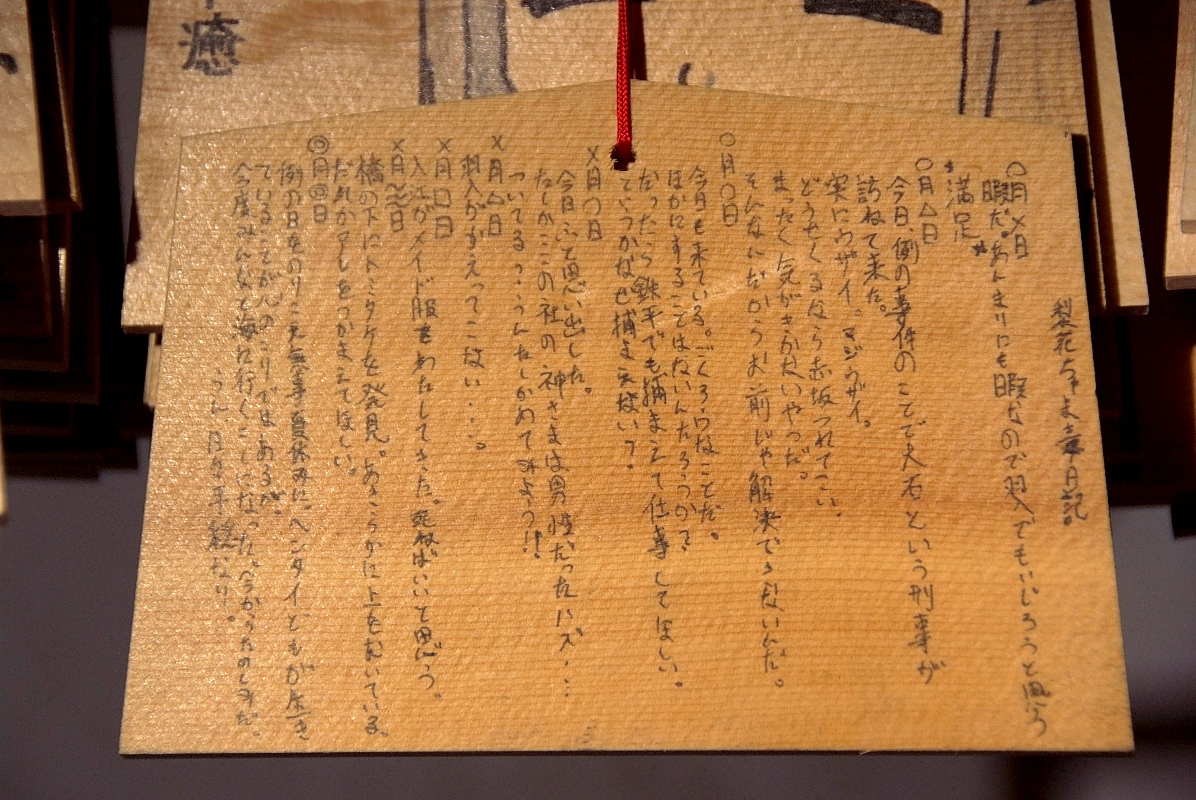 梨花ちゃま毒日記
〇月×日
暇だ。あんまりにも暇なので羽入でもいじろうと思う
満足
〇月△日
今日、例の事件のことで大石という刑事が
訪ねて来た。
実にウザイ。マジウザイ。
どうせくるなら赤坂つれてこい。
まったく気がきかないやつだ。
そんなんだからお前じゃ解決できないんだ。
〇月〇日
今日も来ている。ごくろうなことだ。
ほかにすることはないんだろうか?
だったら鉄平でも捕まえて仕事してほしい。
ていうかなぜ捕まえない?
×月〇日
今日ふと思い出した。
たしかここの社の神さまは男性だったハズ・・・
ついてる?うんたしかめてみよう!!
×月△日
羽入がかえってこない・・・。
×月□日
入江がメイド服をわたしてきた。死ねばいいと思う。
×月〜日
橋の下にトミタケを発見。あきらかに上をむいている。
だれかアレをつかまえてほしい。
◎月◎日
例の日をのりこえ無事夏休みに。ヘンタイどもが生き
ていることが心のこりではあるが。
今度みんなで海に行くことになった。今からたのしみだ。
うん、日々平穏なり。
癒